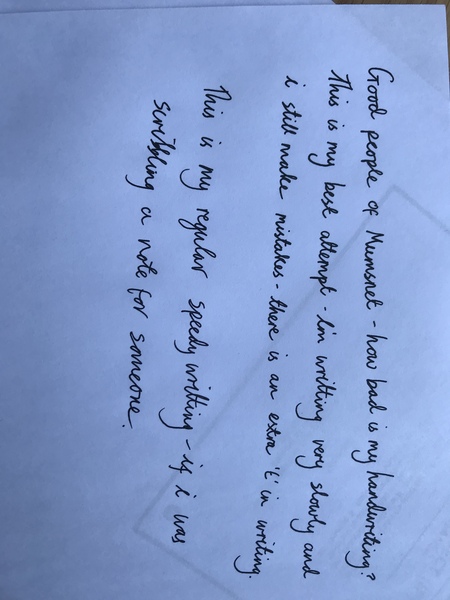 Good people of Mumsnet - how bad is my handwriting?
This is my best attempt - I'm writting very slowly and
i still make mistakes - there is an extra 't' in writing.
This is my regular speedy writting - if i was
scribbling a note for someone.